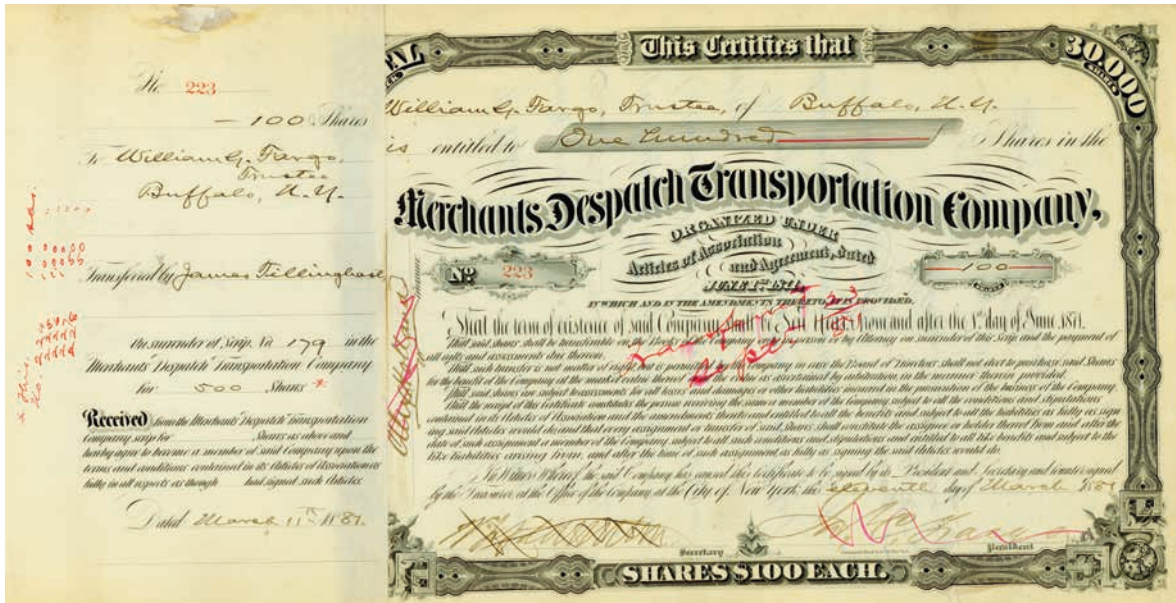 No. 223
100 Shares
To William G. Fargo,
Trustee
Buffalo, N.Y.
Transferred by James Tillinghast
On surrender of Scrip No 179 in the
Merchants Despatch Transportation Company
for 500 Shares *
Received from the Merchants Despatch Transportation
Company scrip for Shares as above and
hereby agree to become a member of said Company upon the
terms and conditions contained in its Articles of Association as
fully in all respects as though had signed such Articles.
Dated March 11th 1881.
This Certifies that
30,000
William G. Fargo, Trustee, of Buffalo, N.Y.
is entitled to One Hundred Shares in the
Merchants Despatch Transportation Company,
ORGANIZED UNDER
Articles of Association
and Agreement, dated
JUNE 1st 1871,
No 223
100
IN WHICH AND IN THE AMENDMENTS THERETO, IT IS PROVIDED.
That the term of existence of said Company shall be from and after the 1st day of June, 1871.
That said shares shall be transferable on the Books of the Company in person or by Attorney on surrender of this Scrip and the payment of
all debts and assessments due thereon.
That such transfer is not matter of right but is permitted by the Company in case the Board of Directors shall not elect to purchase said Shares
for the benefit of the Company at the market value thereof or at the value as ascertained by arbitration in the manner therein provided.
That said shares are subject to assessments for all losses and damages or other liabilities incurred in the prosecution of the business of the Company.
That the receipt of this Certificate constitutes the person receiving the same a member of the Company subject to all the conditions and stipulations
contained in its Articles of Association and the amendments thereto and entitled to all the benefits and subject to all the liabilities as fully as sign
ing said Articles would do, and that every assignment or transfer of said Shares shall constitute the assignee or holder thereof from and after the
date of such assignment a member of the Company subject to all such conditions and stipulations and entitled to all like benefits and subject to the
like liabilities arising from, and after the time of such assignment as fully as signing the said Articles would do.
In Witness Whereof, the said Company has caused this Certificate to be signed by its President and Secretary and countersigned
by the Treasurer, at the Office of the Company, at the City of New York this eleventh day of March 1881
Secretary
President
SHARES $100 EACH.